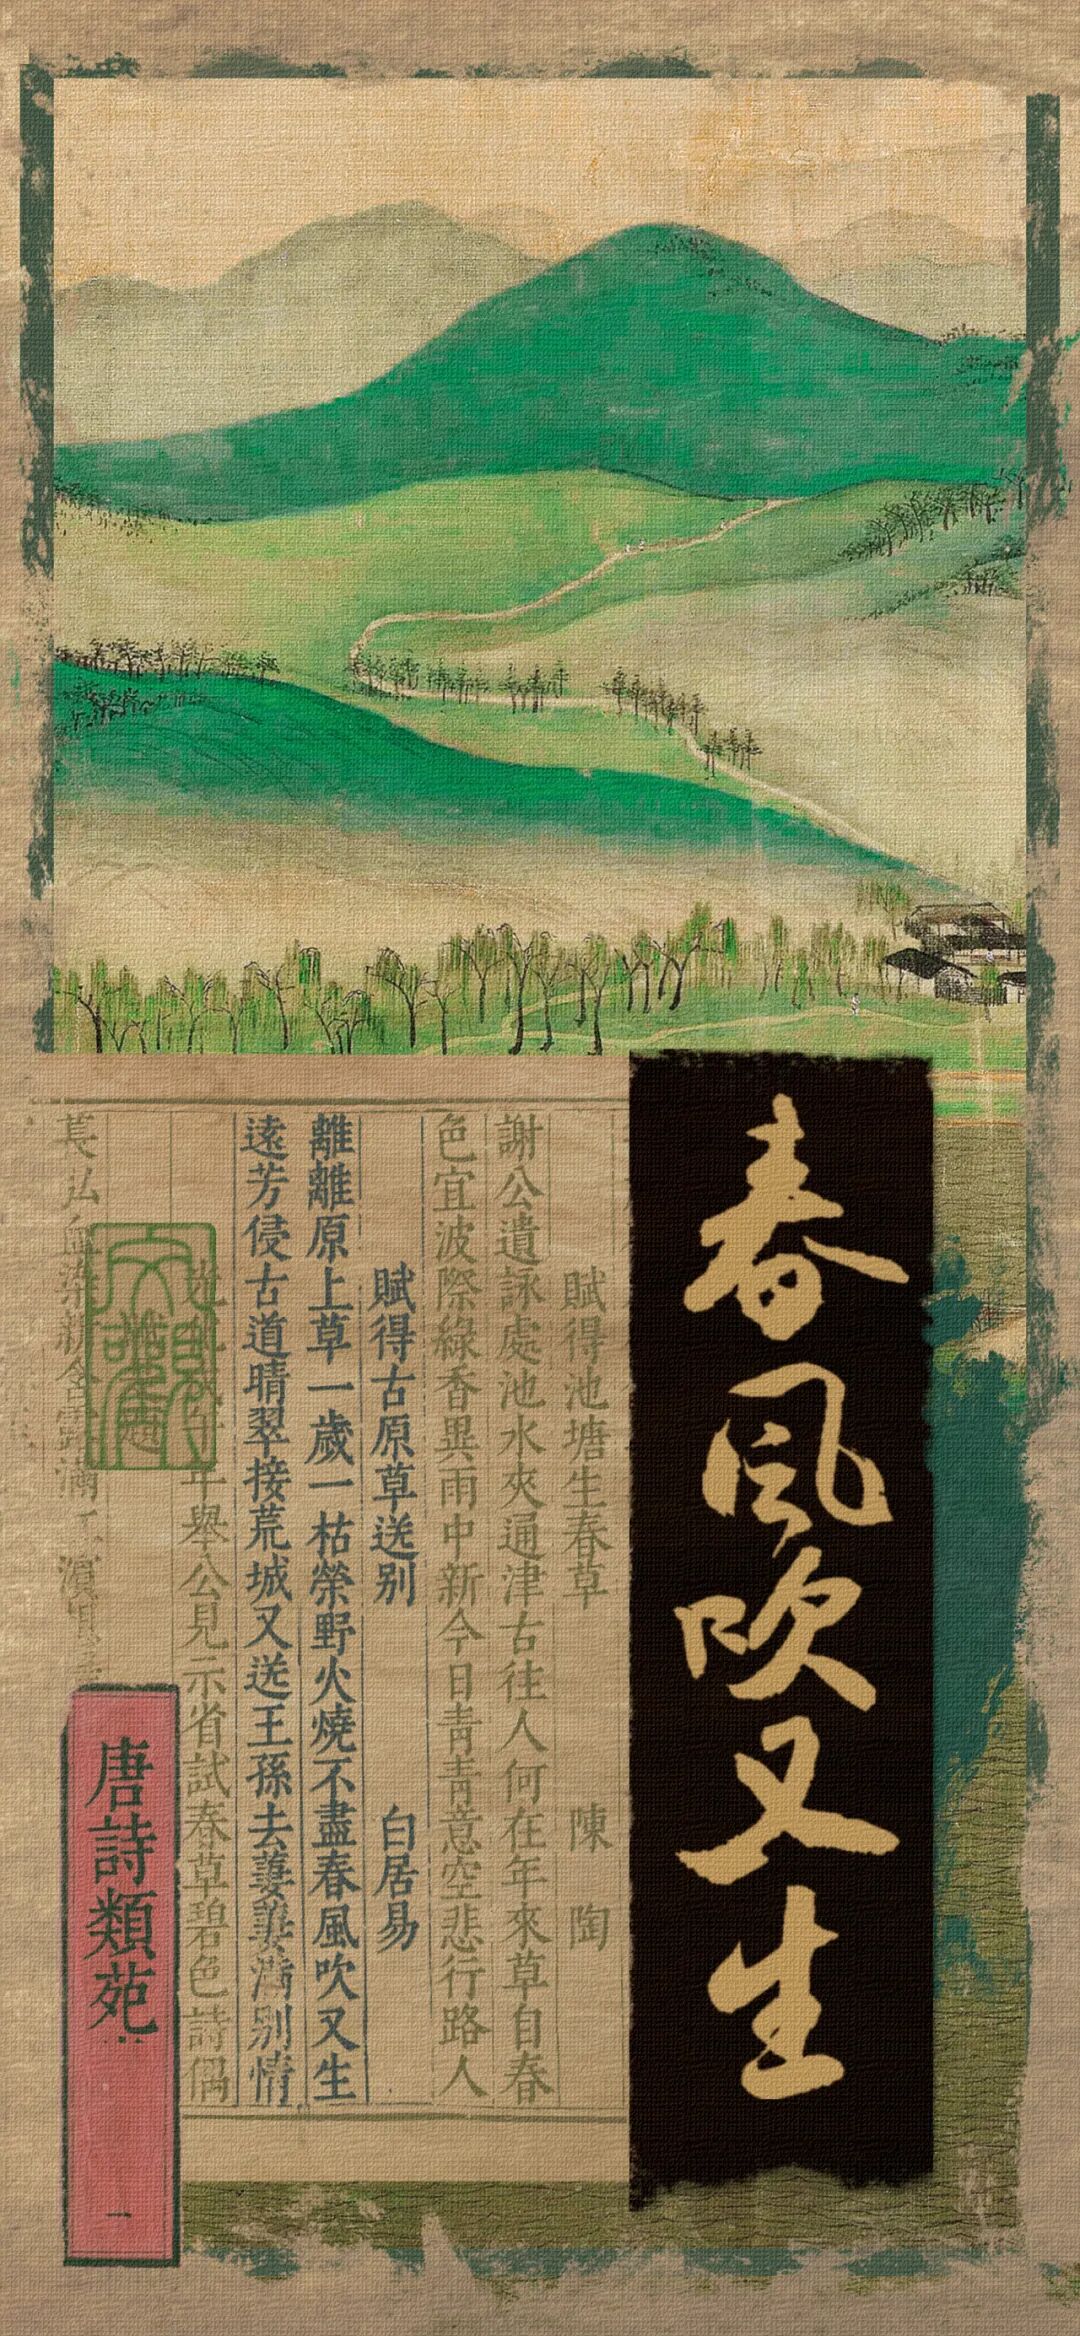 春風吹又生
賦得池塘生春草 陳陶
謝公遺詠處池水夾通津古往人何在年來草自春
色宜波際綠香異雨中新今日青青意空悲行路人
賦得古原草送别 白居易
離離原上草一歲一枯榮野火燒不盡春風吹又生
遠芳侵古道晴翠接荒城又送王孫去萋萋滿别情
年舉公見示省試春草碧色詩偶
萇弘血染
唐詩類苑
一